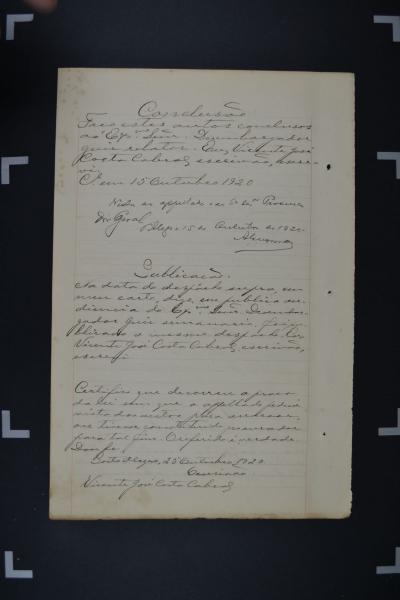 Conclusão
Faço estes autos conclusos
ao Exmo. Snr. Desembargador
juiz relator. Eu, Vicente José
Costa Cabral, escrivão, escre-
vi.
C. em 15 Outubro 1920
Vista ao appellado e ao Sr. Dr. Procura-
dor Geral
P. Alegre 15 de Outubro de 1920.
Publicação.
Na data do despacho supra, em
meu cartorio, digo, em publica au-
diencia do Exmo. Snr. Desembar-
gador juiz semanario, foi pu-
blicado o mesmo despacho. Eu,
Vicente José Costa Cabral, escrivão,
escrevi
Certifico que decorreu o prazo
da lei sem que o appellado pedisse
vista dos autos para arrazoar,
ou tivesse constituido procurador
para tal fim. O referido é verdade.
Dou fé.
Porto Alegre, 25 Outubro 1920
O escrivão
Vicente José Costa Cabral